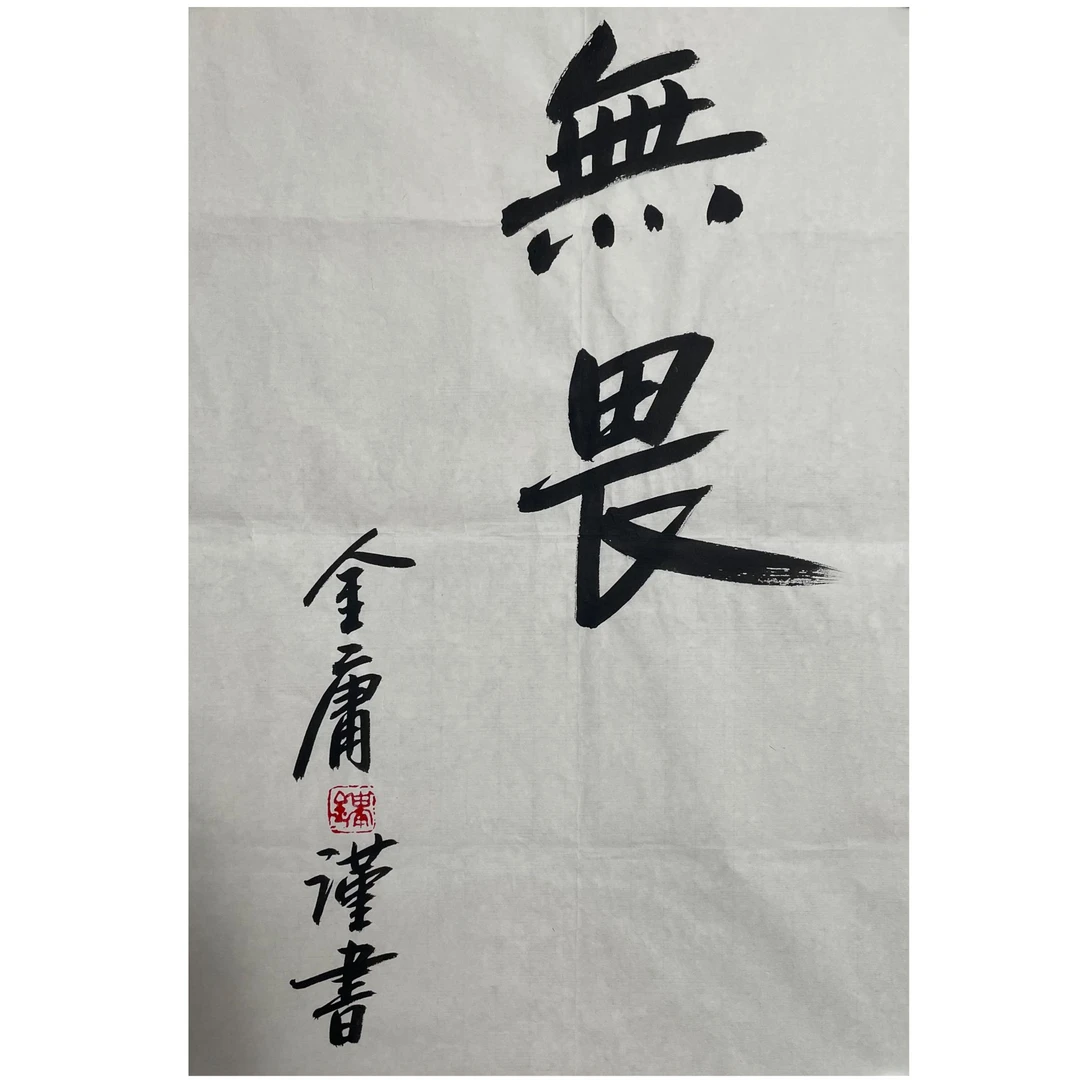 無畏
金庸
謹書